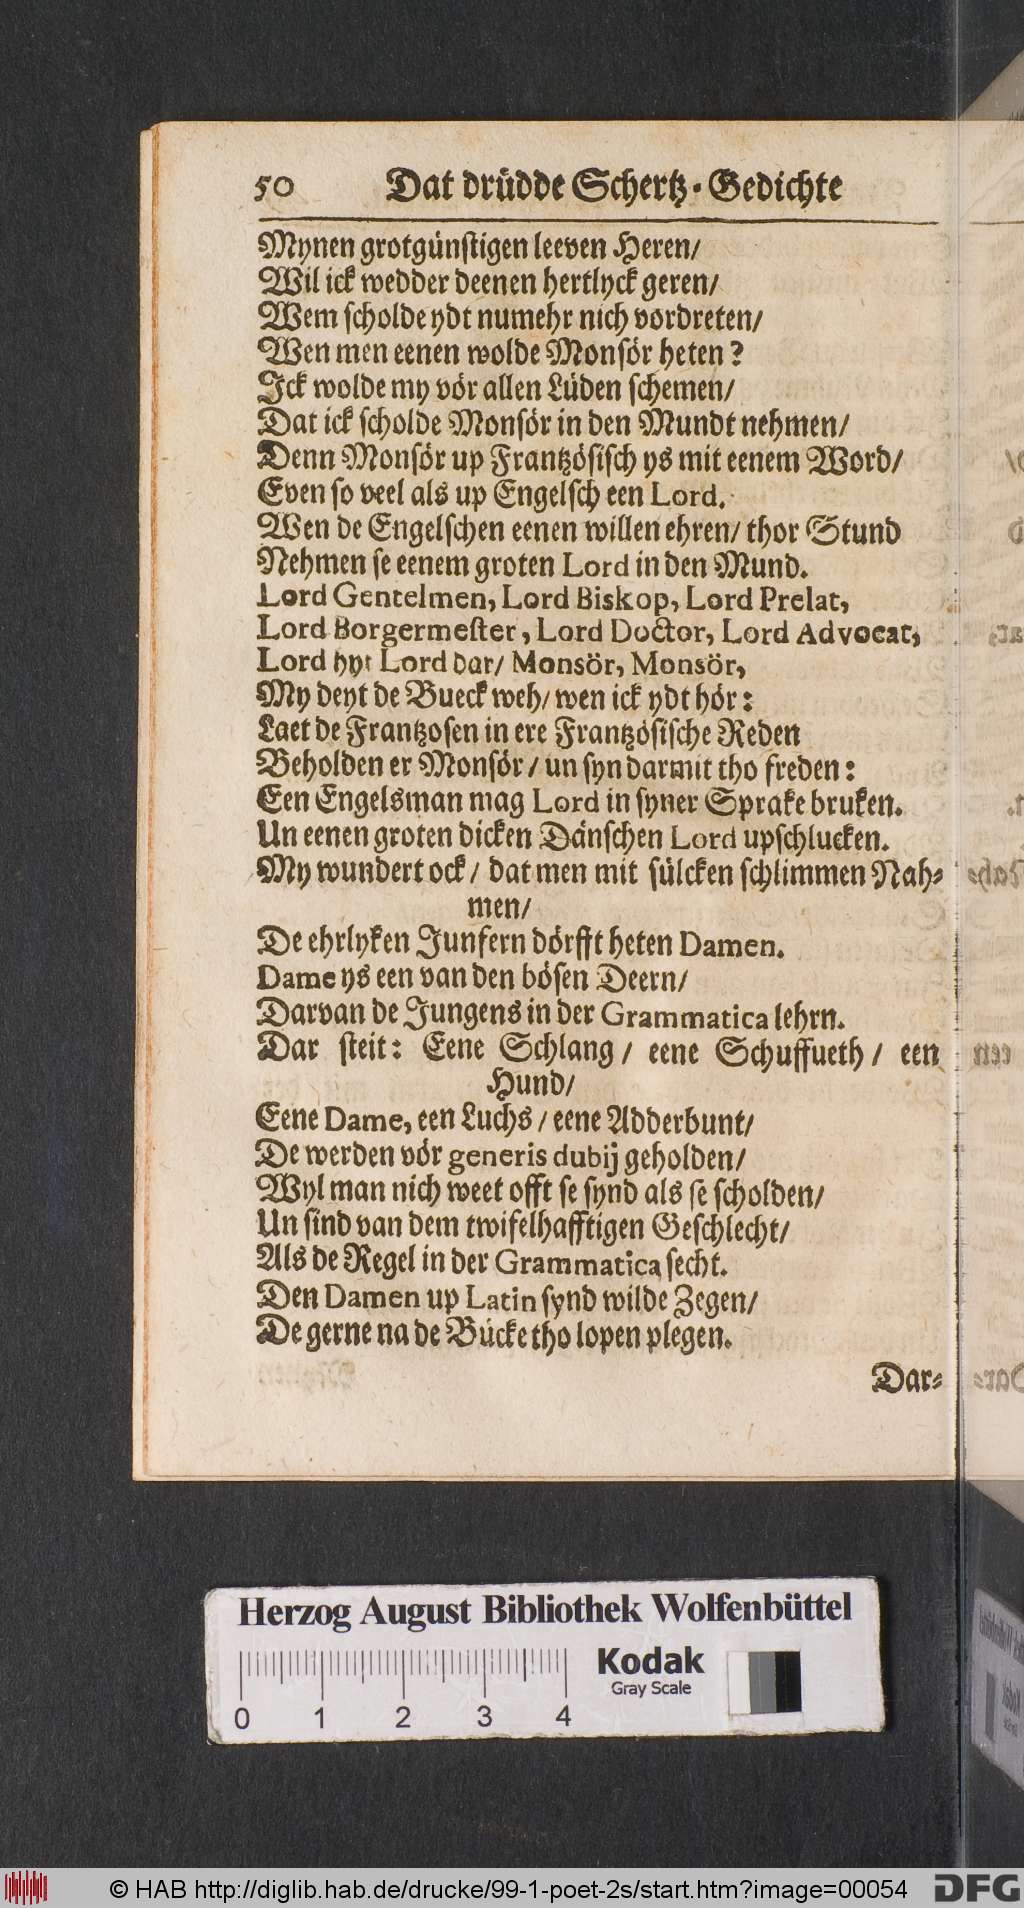 50 Dat drüdde Schertz-Gedichte
Mynen grotgünstigen leeven Heren/
Wil ick wedder deenen hertlyck geren/
Wem scholde ydt numehr nich vordreten/
Wen men eenen wolde Monsör heten?
Ick wolde my vör allen Lüden schemen/
Dat ick scholde Monsör in den Mundt nehmen/
Denn Monsör up Frantzösisch ys mit eenem Word/
Even so veel als up Engelsch een Lord.
Wen de Engelschen eenen willen ehren/ thor Stund
Nehmen se eenem groten Lord in den Mund.
Lord Gentelmen, Lord Biskop, Lord Prelat,
Lord Borgermester, Lord Doctor, Lord Advocat,
Lord hyr Lord dar/ Monsör, Monsör,
My deyt de Bueck weh/ wen ick ydt hör:
Laet de Frantzosen in ere Frantzösische Reden
Beholden er Monsör/ un syn darmit tho freden:
Een Engelsman mag Lord in syner Sprake bruken.
Un eenen groten dicken Dänschen Lord upschlucken.
My wundert ock/ dat men mit sülcken schlimmen Nah-
men/
De ehrlyken Junfern dörfft heten Damen.
Dame ys een van den bösen Deern/
Darvan de Jungens in der Grammatica lehrn.
Dar steit: Eene Schlang/ eene Schuffueth/ een
Hund/
Eene Dame, een Luchs/ eene Adderbunt/
De werden vör generis dubij geholden/
Wyl man nich weet offt se synd als se scholden/
Un sind van dem twifelhafftigen Geschlecht/
Als de Regel in der Grammatica secht.
Den Damen up Latin synd wilde Zegen/
De gerne na de Bücke tho lopen plegen.
Dar-
Herzog August Bibliothek Wolfenbüttel
Kodak
Gray Scale
0 1 2 3 4
© HAB http://diglib.hab.de/drucke/99-1-poet-2s/start.htm?image=00054
DFG